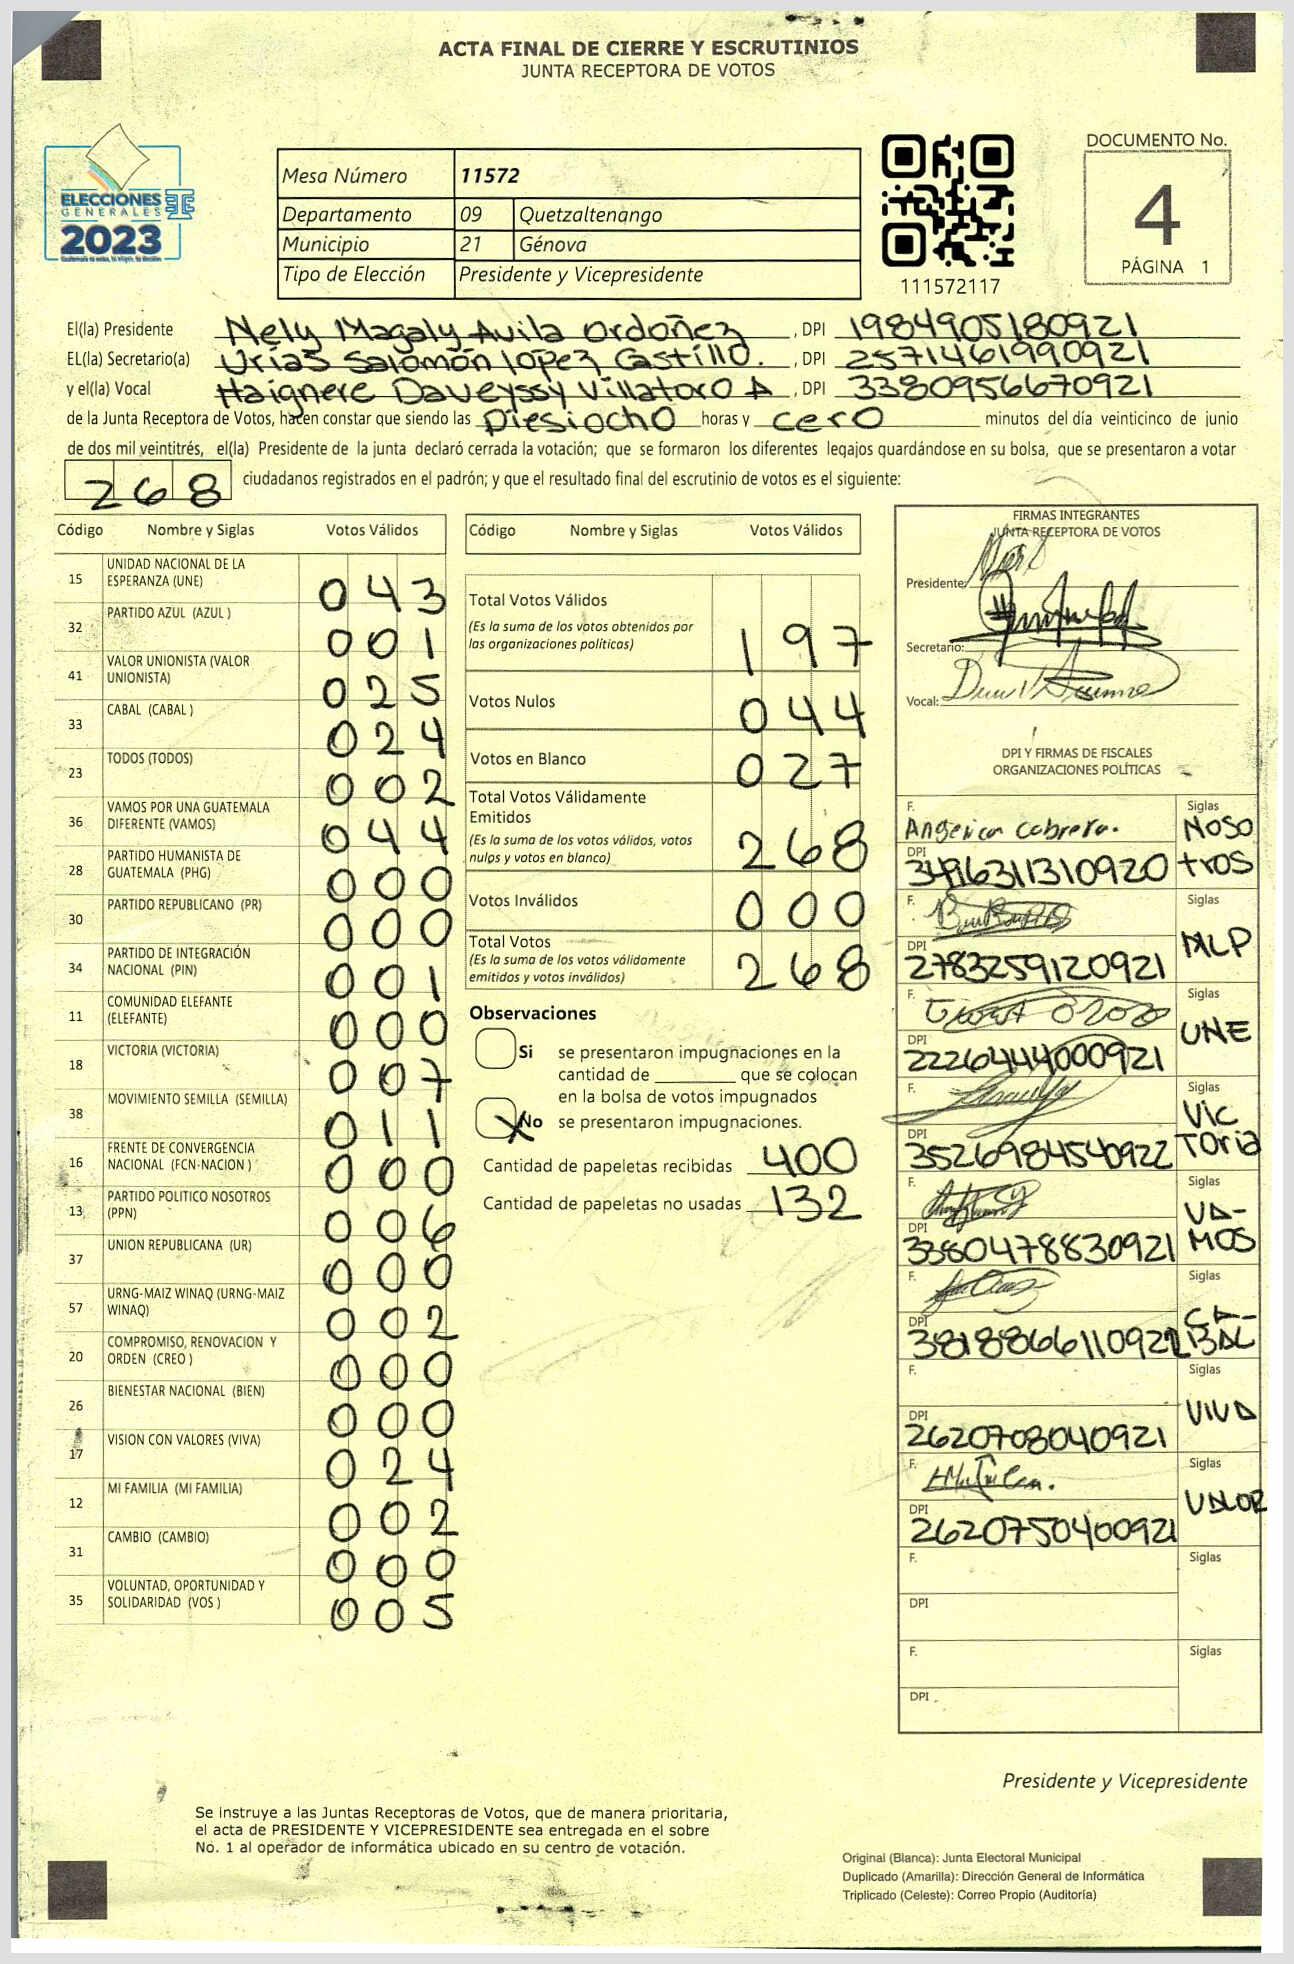 ACTA FINAL DE CIERRE Y ESCRUTINIOS
JUNTA RECEPTORA DE VOTOS
ELECCIONES
GENERALES
2023
Mesa Número 11572
Departamento 09 Quetzaltenango
Municipio 21 Génova
Tipo de Elección Presidente y Vicepresidente
111572117
DOCUMENTO No.
4
PÁGINA 1
El(la) Presidente Nely Magaly Avila Ordoñez, DPI 1984905180921
EL(la) Secretario(a) Urías Salomón lopez Castillo., DPI 2571461990921
y el(la) Vocal Haignere Daveyssy Villatoro A, DPI 3380956670921
de la Junta Receptora de Votos, hacen constar que siendo las Diesiocho horas y cero minutos del día veinticinco de junio
de dos mil veintitrés, el(la) Presidente de la junta declaró cerrada la votación; que se formaron los diferentes legajos guardándose en su bolsa, que se presentaron a votar
268 ciudadanos registrados en el padrón; y que el resultado final del escrutinio de votos es el siguiente:
Código Nombre y Siglas Votos Válidos
15 UNIDAD NACIONAL DE LA
ESPERANZA (UNE) 043
32 PARTIDO AZUL (AZUL ) 001
41 VALOR UNIONISTA (VALOR
UNIONISTA) 025
33 CABAL (CABAL ) 024
23 TODOS (TODOS) 002
36 VAMOS POR UNA GUATEMALA
DIFERENTE (VAMOS) 044
28 PARTIDO HUMANISTA DE
GUATEMALA (PHG) 000
30 PARTIDO REPUBLICANO (PR) 000
34 PARTIDO DE INTEGRACIÓN
NACIONAL (PIN) 001
11 COMUNIDAD ELEFANTE
(ELEFANTE) 000
18 VICTORIA (VICTORIA) 007
38 MOVIMIENTO SEMILLA (SEMILLA) 011
16 FRENTE DE CONVERGENCIA
NACIONAL (FCN-NACION ) 000
13 PARTIDO POLITICO NOSOTROS
(PPN) 006
37 UNION REPUBLICANA (UR) 000
57 URNG-MAIZ WINAQ (URNG-MAIZ
WINAQ) 002
20 COMPROMISO, RENOVACION Y
ORDEN (CREO ) 000
26 BIENESTAR NACIONAL (BIEN) 000
17 VISION CON VALORES (VIVA) 024
12 MI FAMILIA (MI FAMILIA) 002
31 CAMBIO (CAMBIO) 000
35 VOLUNTAD, OPORTUNIDAD Y
SOLIDARIDAD (VOS ) 005
Código Nombre y Siglas Votos Válidos
Total Votos Válidos
(Es la suma de los votos obtenidos por
las organizaciones políticas) 197
Votos Nulos 044
Votos en Blanco 027
Total Votos Válidamente
Emitidos
(Es la suma de los votos válidos, votos
nulos y votos en blanco) 268
Votos Inválidos 000
Total Votos
(Es la suma de los votos válidamente
emitidos y votos inválidos) 268
Observaciones
Si se presentaron impugnaciones en la
cantidad de ________ que se colocan
en la bolsa de votos impugnados
X No se presentaron impugnaciones.
Cantidad de papeletas recibidas 400
Cantidad de papeletas no usadas 132
FIRMAS INTEGRANTES
JUNTA RECEPTORA DE VOTOS
Presidente:
Secretario:
Vocal:
DPI Y FIRMAS DE FISCALES
ORGANIZACIONES POLÍTICAS
F. Angerica Cabrera. Siglas NOSO
DPI 3496311310920 tros
F. Siglas MLP
DPI 2783259120921
F. Siglas UNE
DPI 2226444000921
F. Siglas VIC
DPI 3526984540922 TOria
F. Siglas VA-
DPI 3380478830921 MOS
F. Siglas CA-
DPI 3818866110921 BAL
F. Siglas VIVA
DPI 2620708040921
F. Siglas VALOR
DPI 2620750400921
F. Siglas
DPI
F. Siglas
DPI
Presidente y Vicepresidente
Se instruye a las Juntas Receptoras de Votos, que de manera prioritaria,
el acta de PRESIDENTE Y VICEPRESIDENTE sea entregada en el sobre
No. 1 al operador de informática ubicado en su centro de votación.
Original (Blanca): Junta Electoral Municipal
Duplicado (Amarilla): Dirección General de Informática
Triplicado (Celeste): Correo Propio (Auditoría)